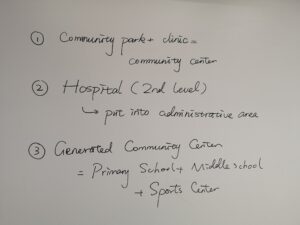 ① Community park + clinic =
community center
② Hospital (2nd Level)
↳ put into administrative area
③ Generated Community Center
= Primary School + Middle school
+ Sports Center